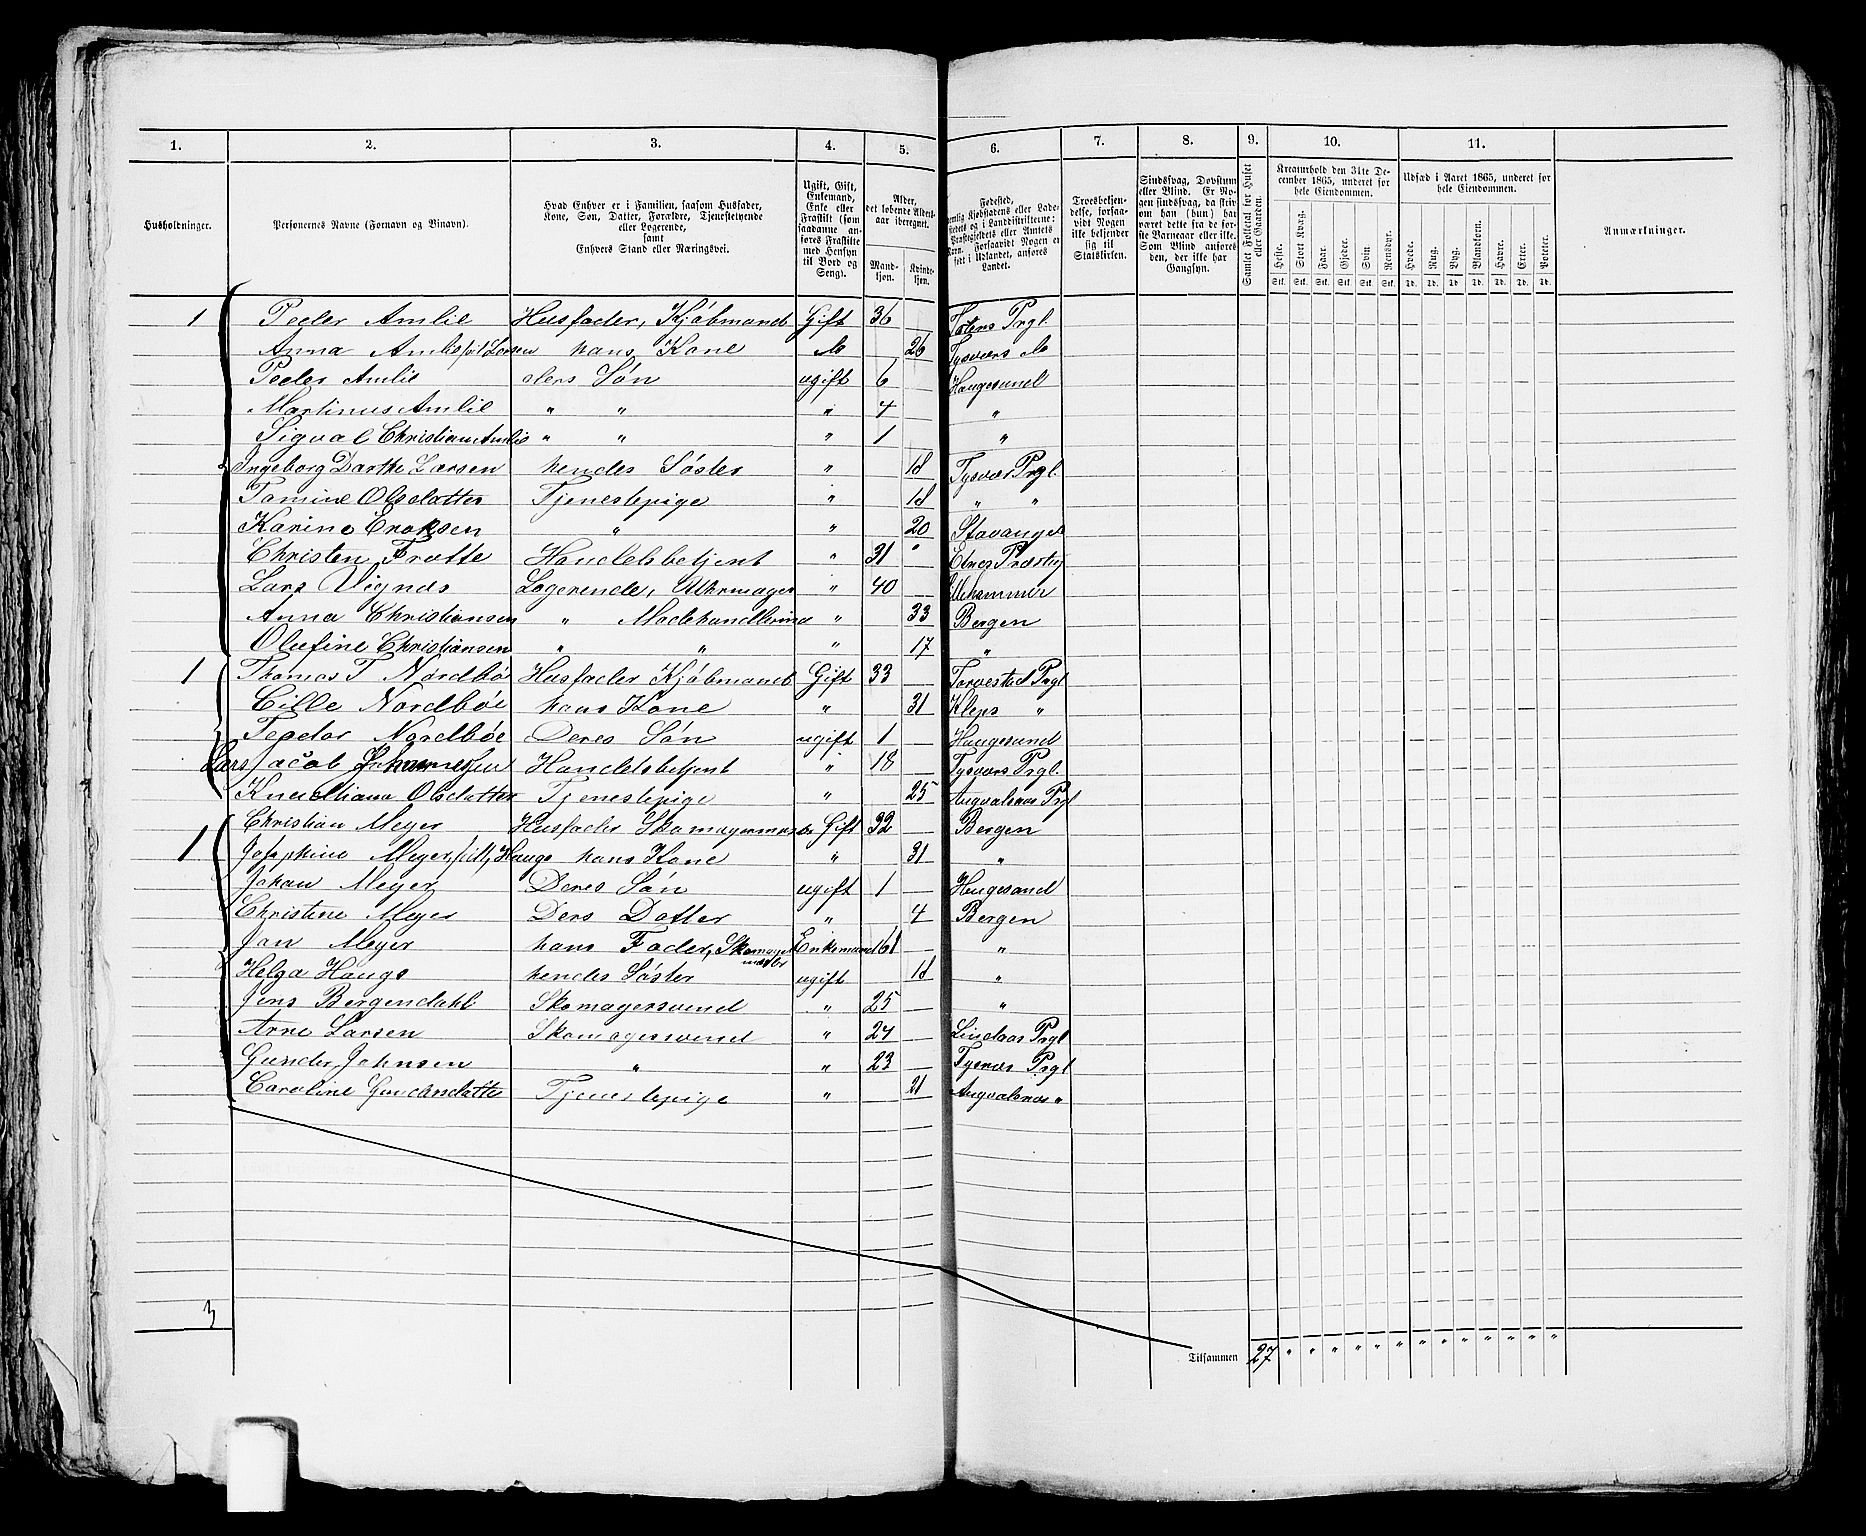 1. 2. 3. 4. 5. 6. 7. 8. 9. 10. 11.
Husholdninger.
Personernes Navne (Fornavn og Binavn).
Hvad Enhver er i Familien, saasom Husfader, Kone, Søn, Datter, Forældre, Tjenestetyende eller Logerende, samt Enhvers Stand eller Næringsvei.
Ugift, Gift, Enkemand, Enke eller Fraskilt (som saadanne anføres Fraskilte med Hensyn til Bord og Seng).
Alder, det løbende Aldersaar iberegnet.
Mandkjøn. Kvindekjøn.
Fødested,
Troesbekjendelse, forsaavidt Nogen ikke bekjender sig til Statskirken.
Sindssvag, Døvstum eller Blind. Er Nogen sindssvag, da skrives om han (hun) har været dette fra de første Barneaar eller ikke. Som Blind anføres den, der ikke har Gangsyn.
Samlet Folketal for Huset eller Gaarden.
Kreaturhold den 31te December 1865, underet for hele Eiendommen.
Heste. Stort Kvæg. Faar. Gjeder. Svin. Rensdyr.
Udsæd i Aaret 1865, underet for hele Eiendommen.
Hvede. Rug. Byg. Blandkorn. Havre. Erter. Poteter.
Anmærkninger.
1 Peder Amlie Husfader, Kjøbmand Gift 36 Totens Prgl.
Anna Amlie föd Larsen hans Kone do 26 Tysværs do
Peder Amlie deres Søn ugift 6 Haugesund
Martinus Amlie " " " 4 "
Sigval Christian Amlie " " " 1 "
Ingeborg Dorthe Larsen hendes Søster " 18 Tysvær Prgl.
Tomine Olsdatter Tjenestepige " 18 " "
Karine Eroksen " " 20 Stavanger
Christen Frette Handelsbetjent " 31 " Etnes Præstg
Lars Vignes Logerende, Uhrmager " 40
Anna Christiansen " Modehandlerinde " 33 Bergen
Olufine Christiansen " " " 17 "
1 Thomas T Nordbøe Husfader Kjøbmand Gift 33 Torvestad Prgl
Cille Nordbøe hans Kone " 31 Kleps "
Tepdor Nordbøe Deres Søn ugift 1 Haugesund
Lars Jacob Johannesen Handelsbetjent " 18 Tysværs Prgl.
Knudtiana Olsdatter Tjenestepige " 25 Augvalsnæs Prgl
1 Christian Meyer Husfader Skomagermester Gift 32 Bergen
Josephine Meyer, föd, Hauge hans Kone " 31 "
Johan Meyer Deres Søn ugift 1 Haugesund
Christine Meyer Ders Datter " 4 Bergen
Jan Meyer hans Fader, Skomagermester Enkemand 61 "
Helga Hauge hendes Søster ugift 18 "
Jens Bergendahl Skomagersvend " 25 "
Arne Larsen Skomagersvend " 24 Lindaas Prgl
Gunder Johnsen " " 23 Tysnæs Prgl
Caroline Gundersdatter Tjenestepige " 21 Augvalsnæs "
3
Tilsammen 27 " " " " " " " " " " " " "